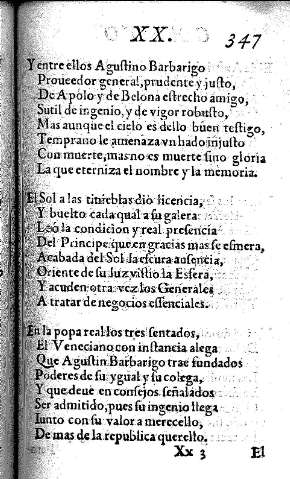 XX. 347
Y entre ellos Agustino Barbarigo
Proueedor general, prudente y justo,
De Apolo y de Belona estrecho amigo,
Sutil de ingenio, y de vigor robusto,
Mas aunque el cielo es dello buen testigo,
Temprano le amenaza vn hado injusto
Con muerte, mas no es muerte sino gloria
La que eterniza el nombre y la memoria.
El Sol a las tinieblas dio licencia,
Y buelto cada qual a su galera
Loó la condicion y real presencia
Del Principe que en gracias mas se esmera,
Acabada del Sol la escura ausencia,
Oriente de su luz vistio la Esfera,
Y acuden otra vez los Generales
A tratar de negocios essenciales.
En la popa real los tres sentados,
El Veneciano con instancia alega
Que Agustin Barbarigo trae fundados
Poderes de su ygual y su colega,
Y que deue en consejos señalados
Ser admitido, pues su ingenio llega
Iunto con su valor a merecello,
De mas de la republica querello.
Xx 3 El